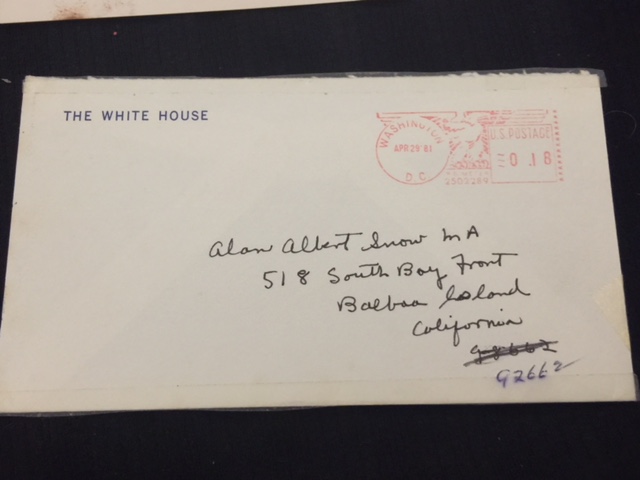 THE WHITE HOUSE
WASHINGTON
APR 29 '81
D.C.
U.S. POSTAGE
0.18
Alan Albert Snow MA
518 South Bay Front
Balboa Island
California
92662